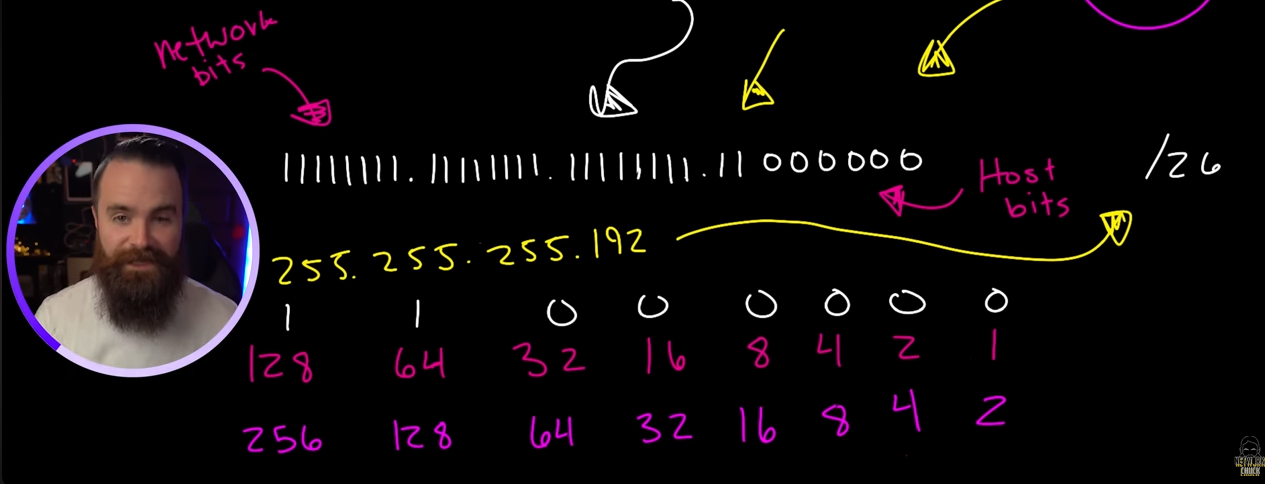 network
bits
11111111.11111111.11111111.11000000
/26
Host
bits
255.255.255.192
1 1 0 0 0 0 0 0
128 64 32 16 8 4 2 1
256 128 64 32 16 8 4 2
NETWORK
CHUCK